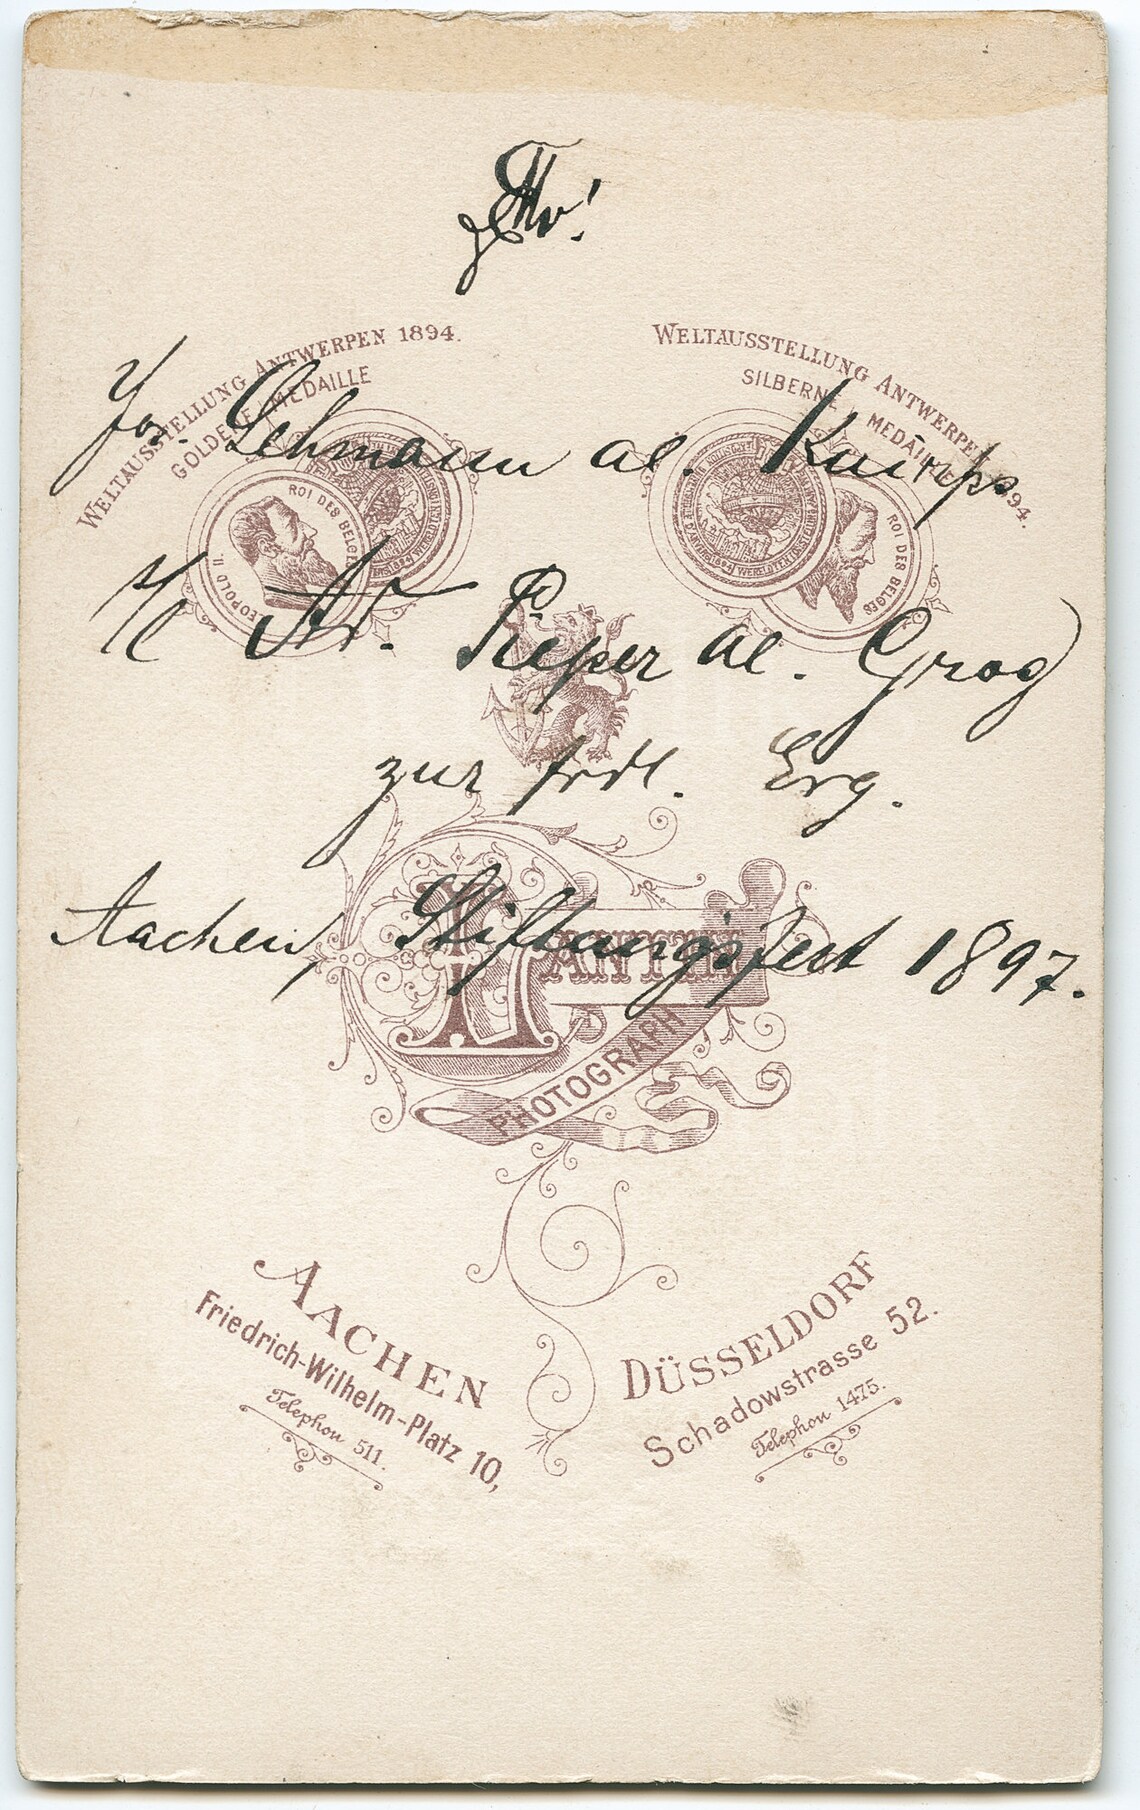 WELTAUSSTELLUNG ANTWERPEN 1894.
GOLDENE MEDAILLE
WELTAUSSTELLUNG ANTWERPEN 1894.
SILBERNE MEDAILLE
LEOPOLD II. ROI DES BELGES
ROI DES BELGES
Jos. Lehmann al. Knirps
s/l Ar. Pieper al. Grog
zur frdl. Erg.
Aachen, Stiftungsfest 1897.
PHOTOGRAPH
AACHEN
Friedrich-Wilhelm-Platz 10,
Telephon 511.
DÜSSELDORF
Schadowstrasse 52.
Telephon 1475.